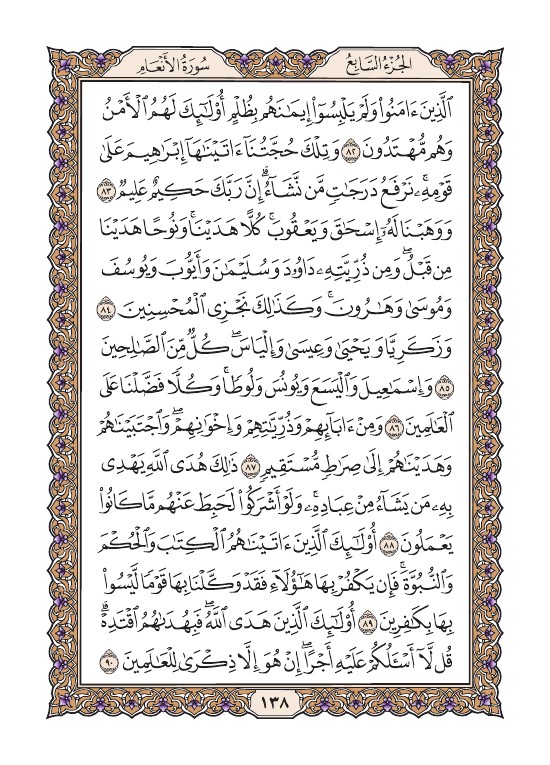 الجُزءُ السَّابِعُ
سُورَةُ الأَنْعَامِ
ٱلَّذِينَ ءَامَنُوا۟ وَلَمْ يَلْبِسُوٓا۟ إِيمَـٰنَهُم بِظُلْمٍ أُو۟لَـٰٓئِكَ لَهُمُ ٱلْأَمْنُ
وَهُم مُّهْتَدُونَ ٨٢ وَتِلْكَ حُجَّتُنَآ ءَاتَيْنَـٰهَآ إِبْرَٰهِيمَ عَلَىٰ
قَوْمِهِۦ ۚ نَرْفَعُ دَرَجَـٰتٍ مَّن نَّشَآءُ ۗ إِنَّ رَبَّكَ حَكِيمٌ عَلِيمٌ ٨٣
وَوَهَبْنَا لَهُۥٓ إِسْحَـٰقَ وَيَعْقُوبَ ۚ كُلًّا هَدَيْنَا ۚ وَنُوحًا هَدَيْنَا
مِن قَبْلُ ۖ وَمِن ذُرِّيَّتِهِۦ دَاوُۥدَ وَسُلَيْمَـٰنَ وَأَيُّوبَ وَيُوسُفَ
وَمُوسَىٰ وَهَـٰرُونَ ۚ وَكَذَٰلِكَ نَجْزِى ٱلْمُحْسِنِينَ ٨٤
وَزَكَرِيَّا وَيَحْيَىٰ وَعِيسَىٰ وَإِلْيَاسَ ۖ كُلٌّ مِّنَ ٱلصَّـٰلِحِينَ
٨٥ وَإِسْمَـٰعِيلَ وَٱلْيَسَعَ وَيُونُسَ وَلُوطًا ۚ وَكُلًّا فَضَّلْنَا عَلَى
ٱلْعَـٰلَمِينَ ٨٦ وَمِنْ ءَابَآئِهِمْ وَذُرِّيَّـٰتِهِمْ وَإِخْوَٰنِهِمْ ۖ وَٱجْتَبَيْنَـٰهُمْ
وَهَدَيْنَـٰهُمْ إِلَىٰ صِرَٰطٍ مُّسْتَقِيمٍ ٨٧ ذَٰلِكَ هُدَى ٱللَّهِ يَهْدِى
بِهِۦ مَن يَشَآءُ مِنْ عِبَادِهِۦ ۚ وَلَوْ أَشْرَكُوا۟ لَحَبِطَ عَنْهُم مَّا كَانُوا۟
يَعْمَلُونَ ٨٨ أُو۟لَـٰٓئِكَ ٱلَّذِينَ ءَاتَيْنَـٰهُمُ ٱلْكِتَـٰبَ وَٱلْحُكْمَ
وَٱلنُّبُوَّةَ ۚ فَإِن يَكْفُرْ بِهَا هَـٰٓؤُلَآءِ فَقَدْ وَكَّلْنَا بِهَا قَوْمًا لَّيْسُوا۟
بِهَا بِكَـٰفِرِينَ ٨٩ أُو۟لَـٰٓئِكَ ٱلَّذِينَ هَدَى ٱللَّهُ ۖ فَبِهُدَىٰهُمُ ٱقْتَدِهْ ۗ
قُل لَّآ أَسْـَٔلُكُمْ عَلَيْهِ أَجْرًا ۖ إِنْ هُوَ إِلَّا ذِكْرَىٰ لِلْعَـٰلَمِينَ ٩٠
١٣٨